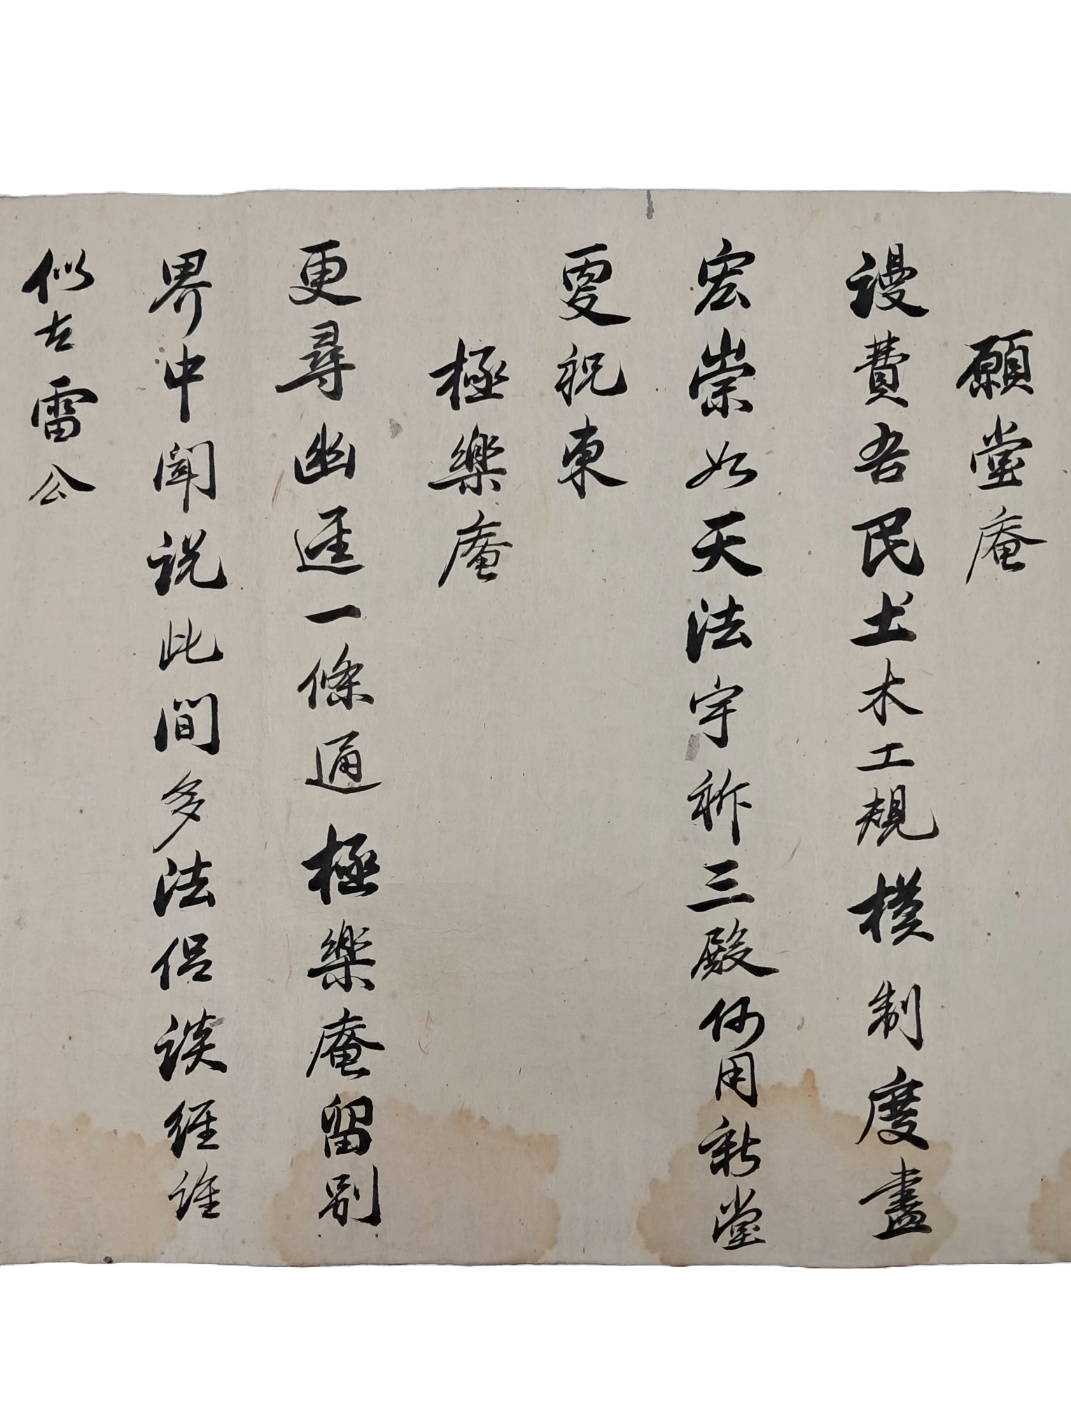 願堂庵
謾費吾民土木工規模制度盡
宏崇如天法宇祈三殿何用新堂
更祝東
極樂庵
更尋幽逕一條通極樂庵留別
界中聞說此間多法侶談經誰
似古雷公